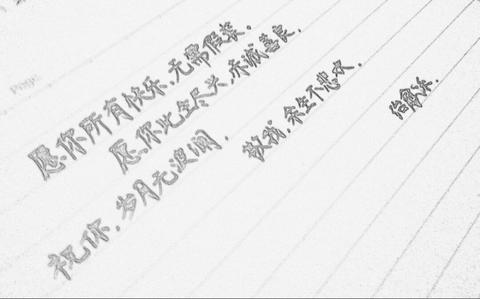 愿你所有快乐,无需假装。
愿你此生尽兴,赤诚善良,
祝你,岁月无波澜,
敬我,余生不悲欢。